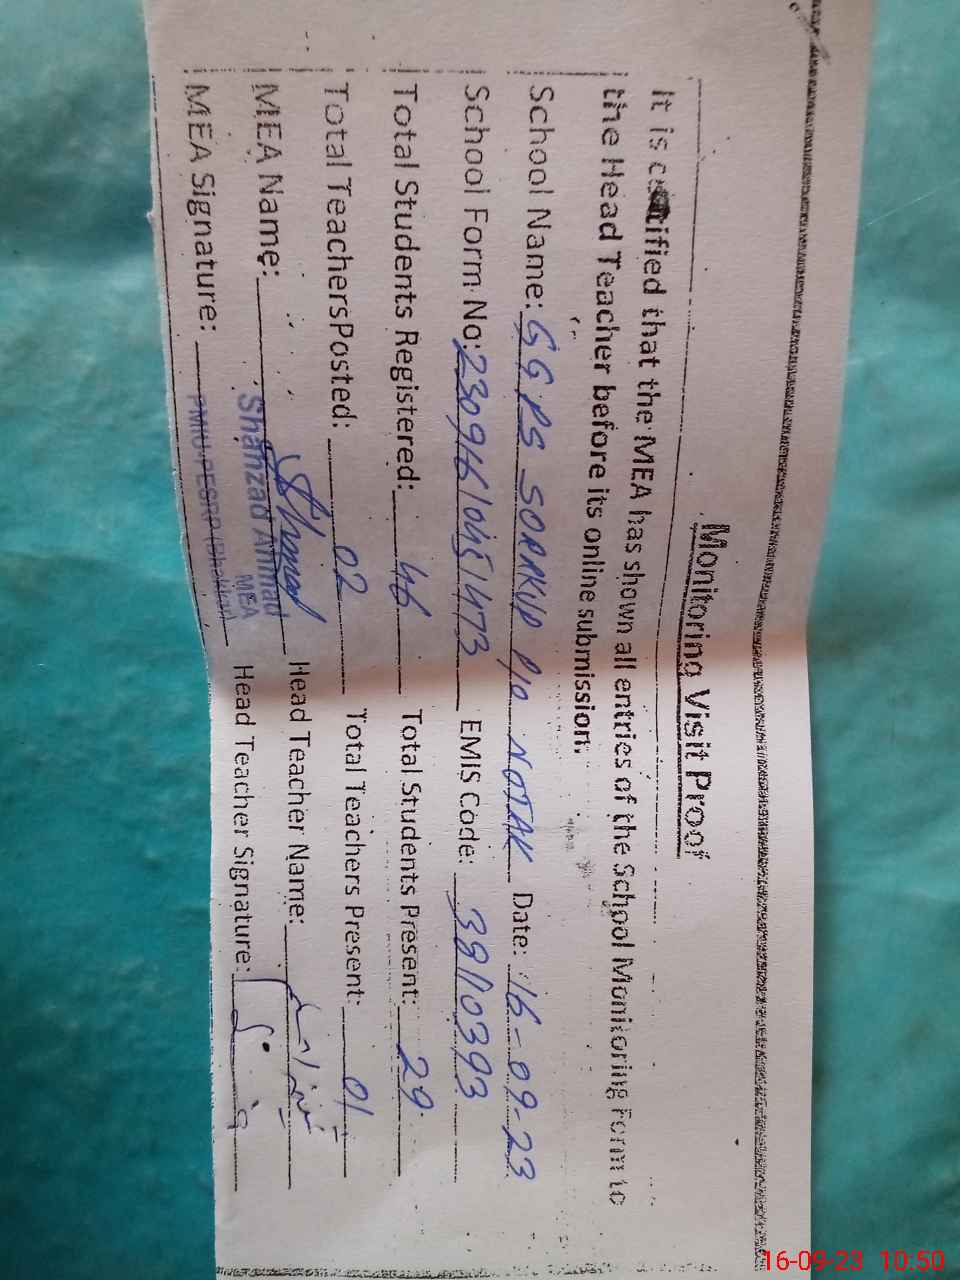 Monitoring Visit Proof
It is certified that the MEA has shown all entries of the School Monitoring Form to
the Head Teacher before its online submission.
School Name: GGPS SORAKUD P/O NOTAK Date: 16-09-23
School Form No: EMIS Code: 38110393
Total Students Registered: 46 Total Students Present: 29
Total TeachersPosted: 02 Total Teachers Present: 01
MEA Name: Head Teacher Name:
Shahzad Ahmad
MEA
MEA Signature: Head Teacher Signature:
PMIU-PESRP (Bhakkar)
16-09-23 10:50